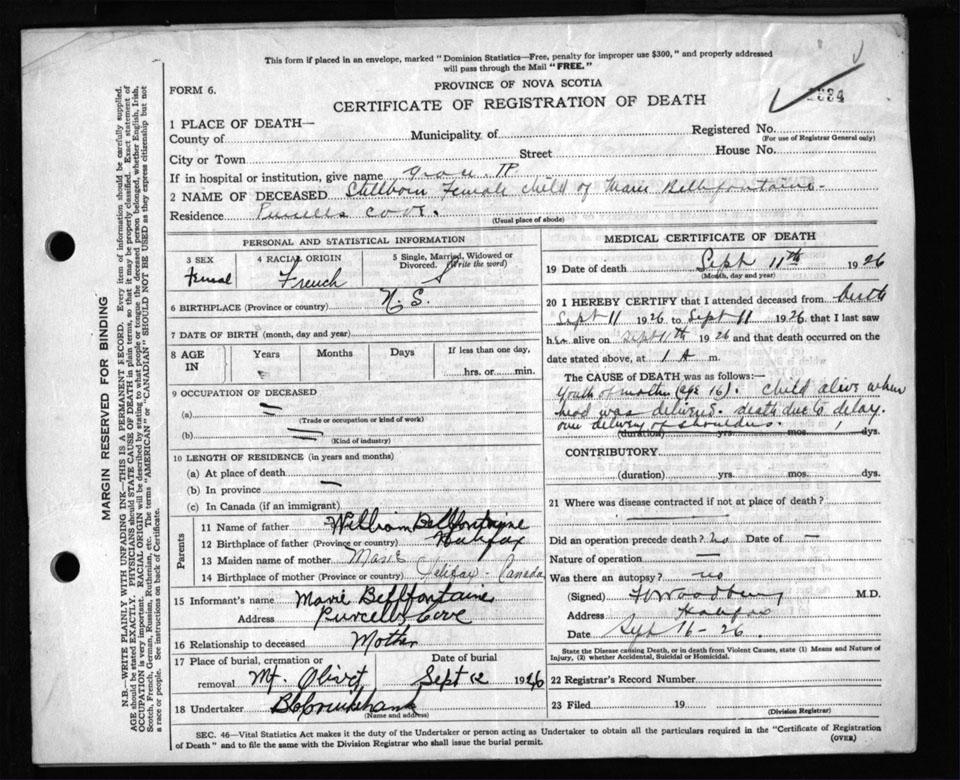 This form if placed in an envelope, marked "Dominion Statistics—Free, penalty for improper use $300," and properly addressed
will pass through the Mail "FREE."
PROVINCE OF NOVA SCOTIA
FORM 6.
CERTIFICATE OF REGISTRATION OF DEATH
1 PLACE OF DEATH—
County of Municipality of Registered No.
(For use of Registrar General only)
City or Town Street House No.
If in hospital or institution, give name
2 NAME OF DECEASED Stillborn Female child of Marie Bellfontaine
Residence Purcells Cove.
(Usual place of abode)
PERSONAL AND STATISTICAL INFORMATION
3 SEX
4 RACIAL ORIGIN
French
5 Single, Married, Widowed or
Divorced. (Write the word)
S
6 BIRTHPLACE (Province or country) N. S.
7 DATE OF BIRTH (month, day and year)
8 AGE
IN
Years Months Days If less than one day,
hrs. or min.
9 OCCUPATION OF DECEASED
(a)
(Trade or occupation or kind of work)
(b)
(Kind of industry)
10 LENGTH OF RESIDENCE (in years and months)
(a) At place of death
(b) In province
(c) In Canada (if an immigrant)
Parents
11 Name of father William Bellfontaine
12 Birthplace of father (Province or country) Halifax
13 Maiden name of mother Marie
14 Birthplace of mother (Province or country) Halifax - Canada
15 Informant's name Marie Bellfontaine
Address Purcells Cove
16 Relationship to deceased Mother
17 Place of burial, cremation or
removal Mt. Olivet
Date of burial
Sept 12 1926
18 Undertaker
(Name and address)
MEDICAL CERTIFICATE OF DEATH
19 Date of death Sept 11th 1926
(Month, day and year)
20 I HEREBY CERTIFY that I attended deceased from Birth
Sept 11 1926 to Sept 11 1926 that I last saw
her alive on Sept 11th 1926 and that death occurred on the
date stated above, at 1 A m.
The CAUSE of DEATH was as follows:—
Youth of mother (age 16). Child alive when
head was delivered. death due to delay.
delivery of shoulders.
(duration) yrs. mos. dys.
CONTRIBUTORY
(duration) yrs. mos. dys.
21 Where was disease contracted if not at place of death?
Did an operation precede death? no Date of —
Nature of operation —
Was there an autopsy? no
(Signed) Woodbury M.D.
Address Halifax
Date Sept 16-26.
State the Disease causing Death, or in death from Violent Causes, state (1) Means and Nature of
Injury, (2) whether Accidental, Suicidal or Homicidal.
22 Registrar's Record Number
23 Filed 19
(Division Registrar)
SEC. 46—Vital Statistics Act makes it the duty of the Undertaker or person acting as Undertaker to obtain all the particulars required in the "Certificate of Registration
of Death" and to file the same with the Division Registrar who shall issue the burial permit.
(OVER)
MARGIN RESERVED FOR BINDING
N.B.—WRITE PLAINLY WITH UNFADING INK—THIS IS A PERMANENT RECORD. Every item of information should be carefully supplied.
AGE should be stated EXACTLY. PHYSICIANS should STATE CAUSE OF DEATH in plain terms, so that it may be properly classified. Exact statement of
OCCUPATION is very important. RACIAL ORIGIN will be described by stating to what people or tongue the deceased person belonged, whether English, Irish,
Scotch, French, German, Russian, Ruthenian, etc. The terms "AMERICAN" or "CANADIAN" SHOULD NOT BE USED as they express citizenship but not
a race or people. See instructions on back of Certificate.